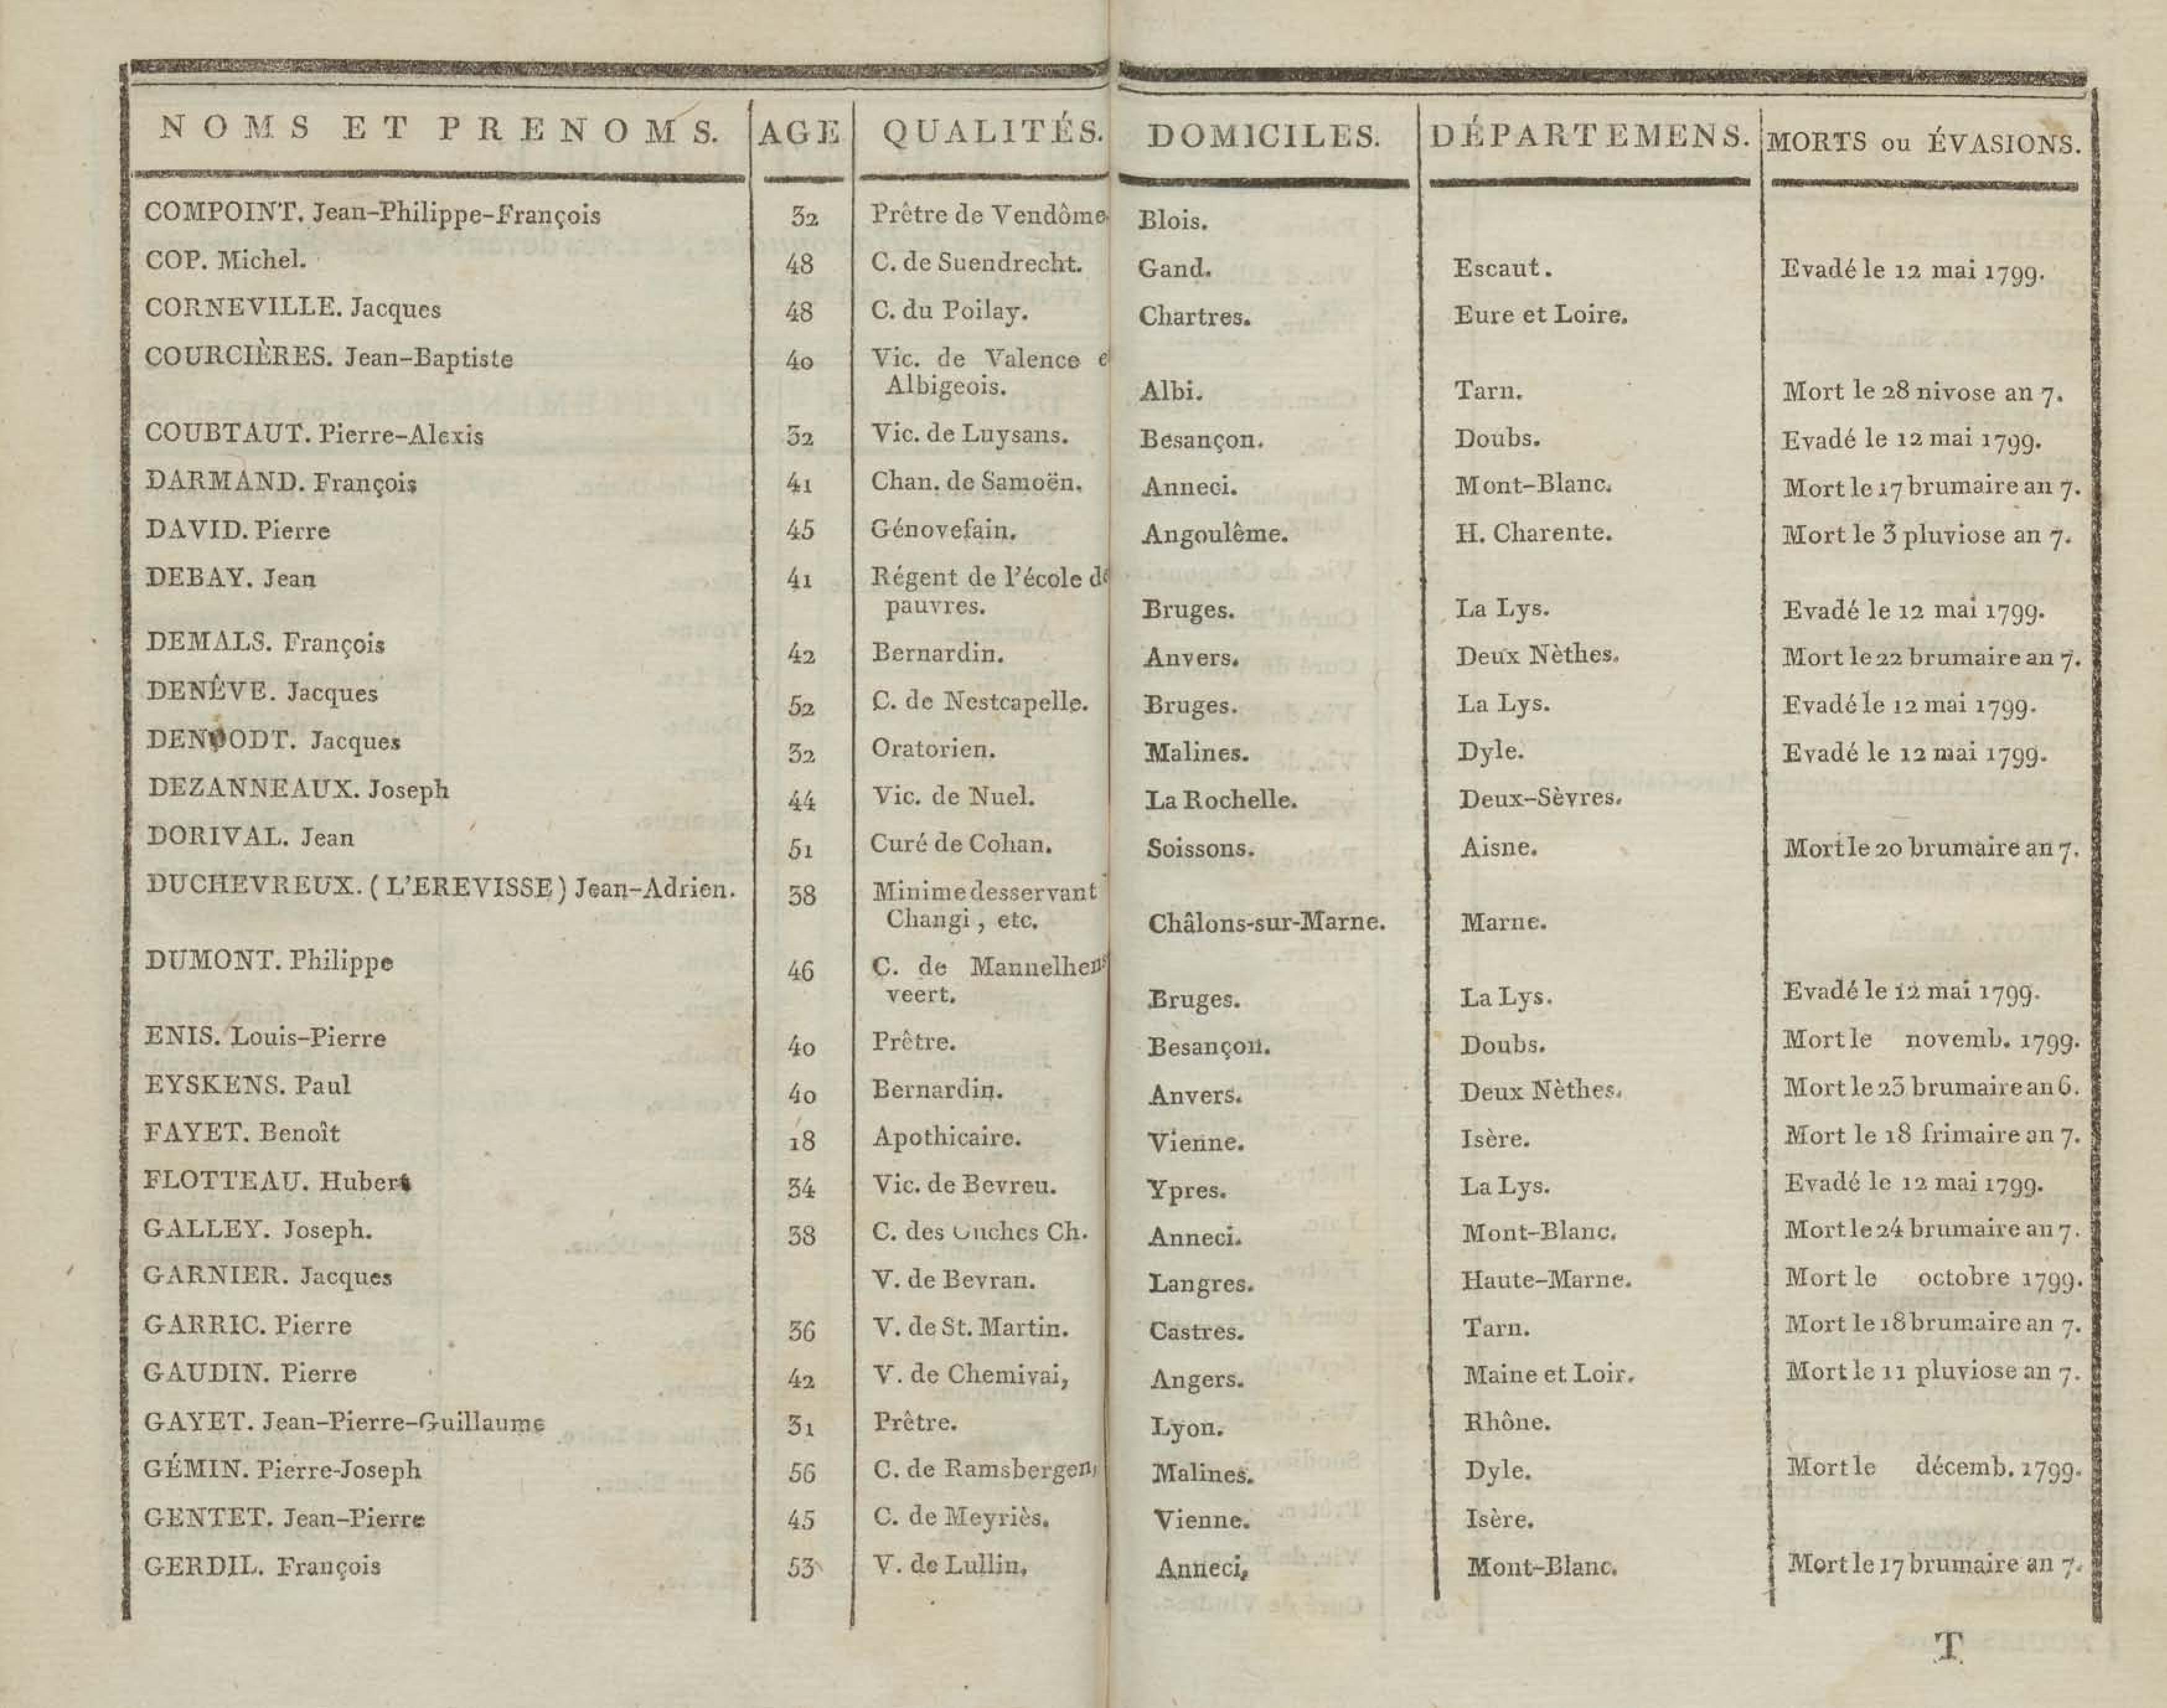 NOMS ET PRENOMS. AGE QUALITÉS. DOMICILES. DÉPARTEMENS. MORTS ou ÉVASIONS.
COMPOINT. Jean-Philippe-François 32 Prêtre de Vendôme Blois.
COP. Michel. 48 C. de Suendrecht. Gand. Escaut. Evadé le 12 mai 1799.
CORNEVILLE. Jacques 48 C. du Poilay. Chartres. Eure et Loire.
COURCIÈRES. Jean-Baptiste 40 Vic. de Valence e
Albigeois. Albi. Tarn. Mort le 28 nivose an 7.
COUBTAUT. Pierre-Alexis 32 Vic. de Luysans. Besançon. Doubs. Evadé le 12 mai 1799.
DARMAND. François 41 Chan. de Samoën. Anneci. Mont-Blanc. Mort le 17 brumaire an 7.
DAVID. Pierre 45 Génovefain. Angoulême. H. Charente. Mort le 3 pluviose an 7.
DEBAY. Jean 41 Régent de l'école de
pauvres. Bruges. La Lys. Evadé le 12 mai 1799.
DEMALS. François 42 Bernardin. Anvers. Deux Nèthes. Mort le 22 brumaire an 7.
DENÊVE. Jacques 52 C. de Nestcapelle. Bruges. La Lys. Evadé le 12 mai 1799.
DENOODT. Jacques 32 Oratorien. Malines. Dyle. Evadé le 12 mai 1799.
DEZANNEAUX. Joseph 44 Vic. de Nuel. La Rochelle. Deux-Sèvres.
DORIVAL. Jean 51 Curé de Cohan. Soissons. Aisne. Mort le 20 brumaire an 7.
DUCHEVREUX. (L'EREVISSE) Jean-Adrien. 38 Minime desservant
Changi, etc. Châlons-sur-Marne. Marne.
DUMONT. Philippe 46 C. de Mannelhens
veert. Bruges. La Lys. Evadé le 12 mai 1799.
ENIS. Louis-Pierre 40 Prêtre. Besançon. Doubs. Mort le novemb. 1799.
EYSKENS. Paul 40 Bernardin. Anvers. Deux Nèthes. Mort le 23 brumaire an 6.
FAYET. Benoît 18 Apothicaire. Vienne. Isère. Mort le 18 frimaire an 7.
FLOTTEAU. Hubert 34 Vic. de Bevreu. Ypres. La Lys. Evadé le 12 mai 1799.
GALLEY. Joseph. 38 C. des Ch. Anneci. Mont-Blanc. Mort le 24 brumaire an 7.
GARNIER. Jacques V. de Bevran. Langres. Haute-Marne. Mort le octobre 1799.
GARRIC. Pierre 36 V. de St. Martin. Castres. Tarn. Mort le 18 brumaire an 7.
GAUDIN. Pierre 42 V. de Chemivai, Angers. Maine et Loir. Mort le 11 pluviose an 7.
GAYET. Jean-Pierre-Guillaume 31 Prêtre. Lyon. Rhône.
GÉMIN. Pierre-Joseph 56 C. de Ramsbergen, Malines. Dyle. Mort le décemb. 1799.
GENTET. Jean-Pierre 45 C. de Meyriès. Vienne. Isère.
GERDIL. François 53 V. de Lullin. Anneci, Mont-Blanc. Mort le 17 brumaire an 7.
T